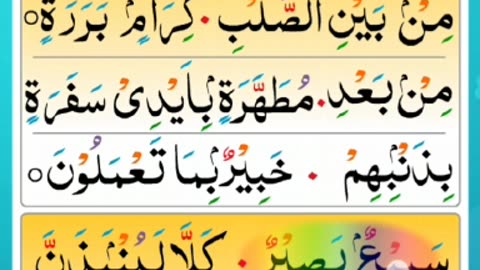 مِنْۢ بَيْنِ الصُّلْبِ ۰ كِرَامٍۭ بَرَرَةٍ ○
مِنْۢ بَعْدِ ۰ مُطَهَّرَةٍۭ بِاَيْدِىْ سَفَرَةٍ
بِذَنْۢبِهِمْ ۰ خَبِيْرٌۢ بِمَا تَعْمَلُوْنَ ○
سَمِيْعٌۢ بَصِيْرٌ ۰ كَلَّا لَيُنْۢبَذَنَّ